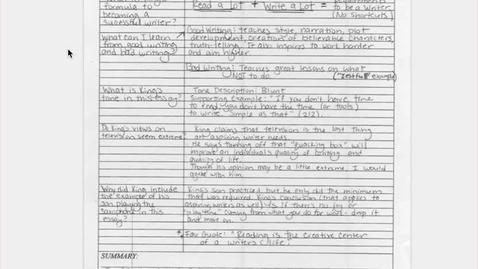 formula to
becoming a
successful writer?
Read a Lot + Write a Lot =
to be a Writer
(No shortcuts)
What can I learn
from good writing
and bad writing?
Good Writing: teaches style, narration, plot
development, creation of believable characters,
truth-telling. It also inspires to work harder
and aim higher.
Bad Writing: Teaches great lessons on what
NOT to do.
example)
What is King's
tone in this essay?
Tone Description: Blunt
Supporting Example: "If you don't have time
to read, you don't have the time (or tools)
to write. Simple as that" (212).
Do King's views on
television seem extreme?
King claims that television is the last thing
an aspiring writer needs.
He says turning off that "quacking box" will
improve an individual's quality of writing and
quality of life.
Though his opinion may be a little extreme, I would
agree with him.
Why did King include
the example of his
son playing the
saxophone in this
essay?
King's son practiced but he only did the minimum
that was required. King's conclusion (that applies to
aspiring writers as well) is if there's no joy or
"playtime" coming from what you do for work - drop it
and move on.
* Fav Quote: "Reading is the creative center
of a writer's life."
SUMMARY: